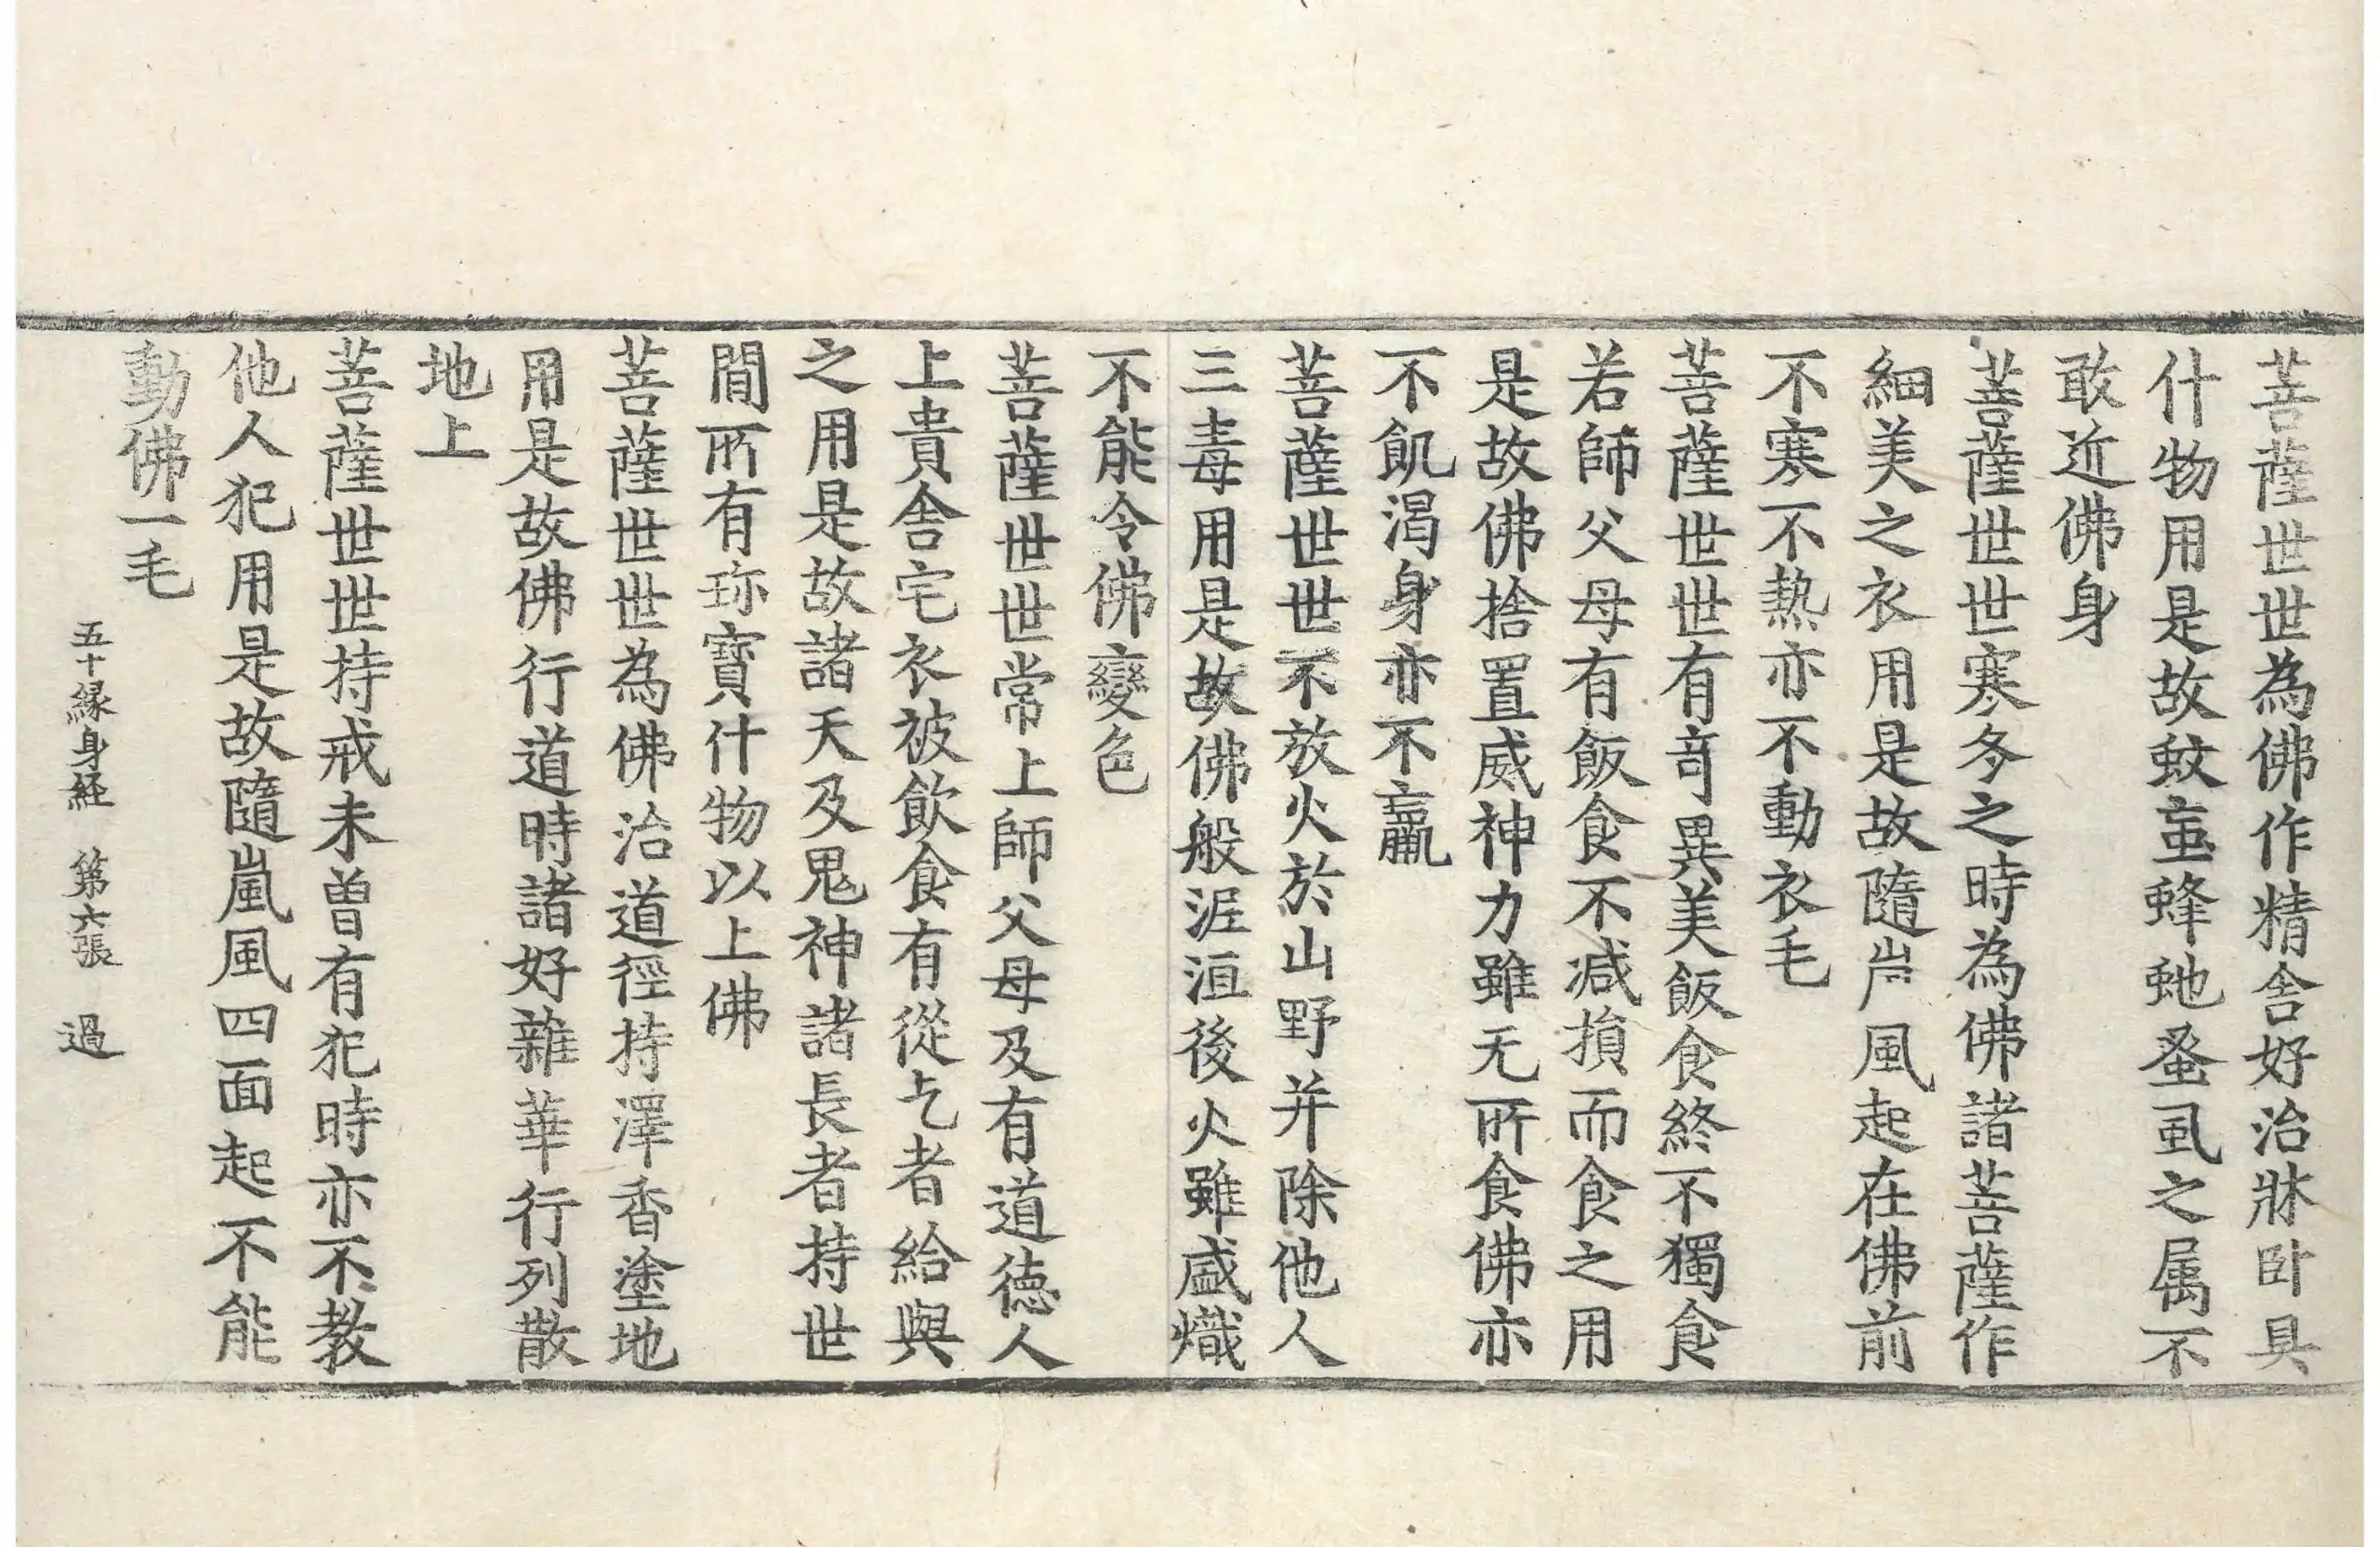 菩薩世世為佛作精舎好治牀卧具
什物用是故蚊䖟蜂虵蚤虱之属不
敢近佛身
菩薩世世寒冬之時為佛諸菩薩作
細美之衣用是故隨嵐風起在佛前
不寒不熱亦不動衣毛
菩薩世世有奇異美飯食終不獨食
若師父母有飯食不減損而食之用
是故佛捨置威神力雖无所食佛亦
不飢渴身亦不羸
菩薩世世不放火於山野并除他人
三毒用是故佛般涅洹後火雖盛熾
不能令佛變色
菩薩世世常上師父母及有道德人
上貴舎宅衣被飲食有從乞者給與
之用是故諸天及鬼神諸長者持世
間所有珎寶什物以上佛
菩薩世世為佛治道徑持澤香塗地
用是故佛行道時諸好雜華行列散
地上
菩薩世世持戒未曽有犯時亦不教
他人犯用是故隨嵐風四面起不能
動佛一毛
五十縁身経 第六張 過